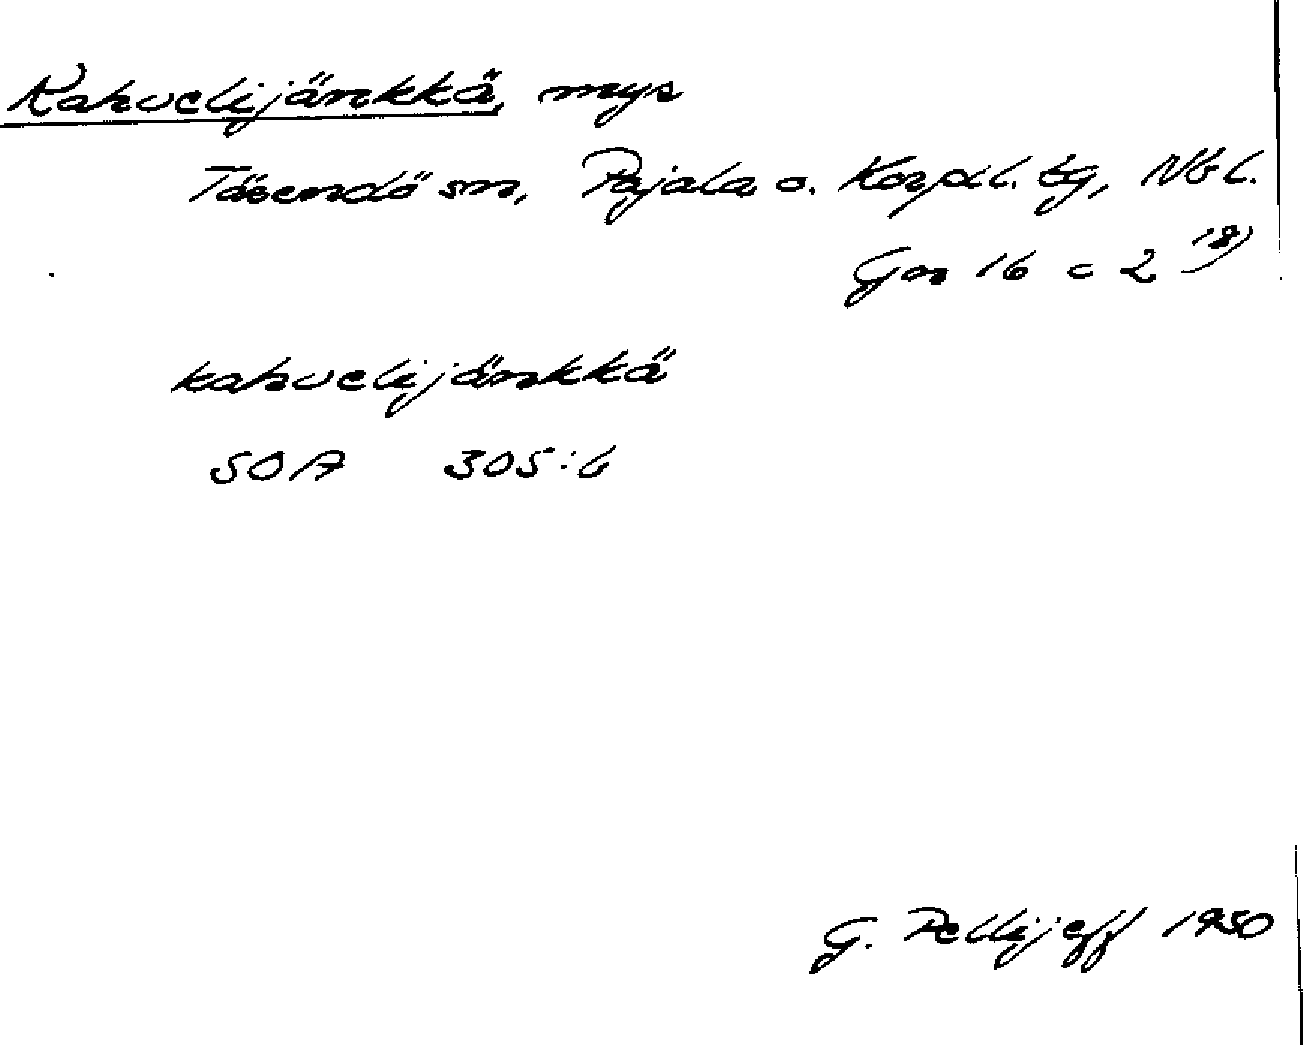 Kahvelijänkkä, myr
Täsendö sn, Pajala o. Korpil. tg, Nb l.
Gor 16 c 2 18)
kahvelijänkkä
SOA 305:6
G. Pellijeff 1950